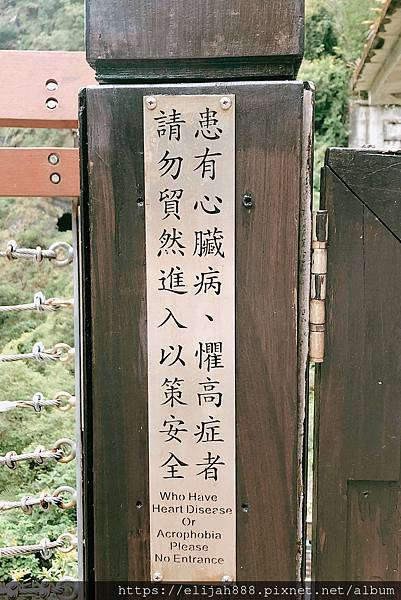 患有心臟病、懼高症者
請勿貿然進入以策安全
Who Have
Heart Disease
Or
Acrophobia
Please
No Entrance
►https://elijah888.pixnet.net/album